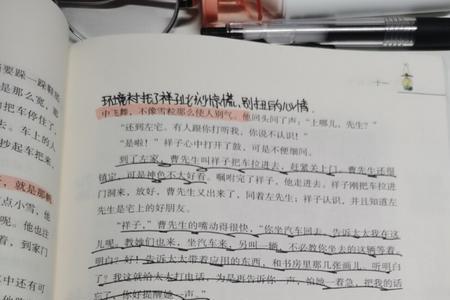 要踩一踩鞋
是那么宽，
把车停住了，
去。车上的人
抄起车把来，
，就是那
点小雪，他
呢。他也
着，到家门
环境衬托了祥子此刻惊慌，别扭的心情。
中飞舞，不像雪粒那么使人别气。他回头问了声，“上哪儿，先生？”
“还到左宅。有人跟你打听我，你说不认识！”
“是啦！”祥子心中打开了鼓，可是不便细问。
到了左家，曹先生叫祥子把车拉进去，赶紧关上门。曹先生还很
镇定，可是神色不大好看。嘱咐完了祥子，他走进去。祥子刚把车拉进
门洞来，放好，曹先生又出来了，同着左先生；祥子认识，并且知道左
先生是宅上的好朋友。
“祥子，”曹先生的嘴动得很快，“你坐汽车回去。告诉太太我在这
儿呢。教她们也来，坐汽车来，另叫一辆，不必教你坐去的这辆等着。
明白？好！告诉太太带着应用的东西，和书房里那几张画儿。听明白
了？我这就给太太打电话，为是再告诉你一声，怕她一着急，把我的话
忘了，你好提醒她一声。”